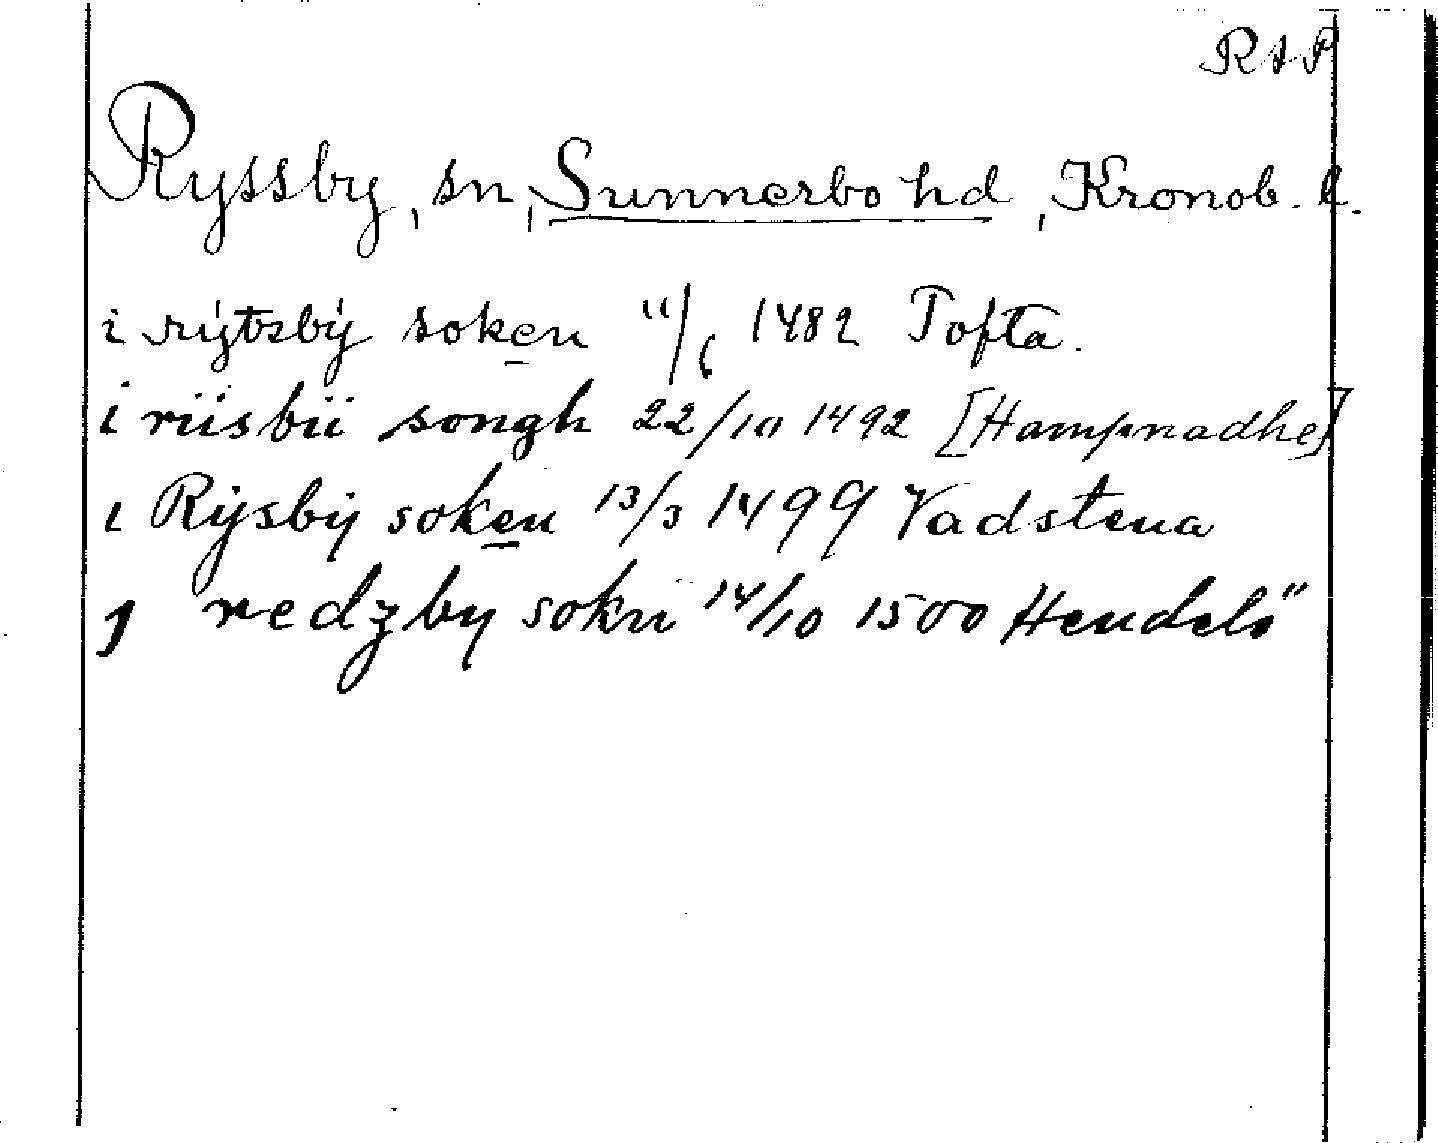 RAP
Ryssby, sn, Sunnerbo hd, Kronob. l.
i rÿtzbÿ soken 11/6 1482 Tofta.
i riisbii songh 22/10 1492 [Hampnadhe]
i Rÿsbÿ soken 13/3 1499 Vadstena
j redzby sokn 14/10 1500 Hendelö